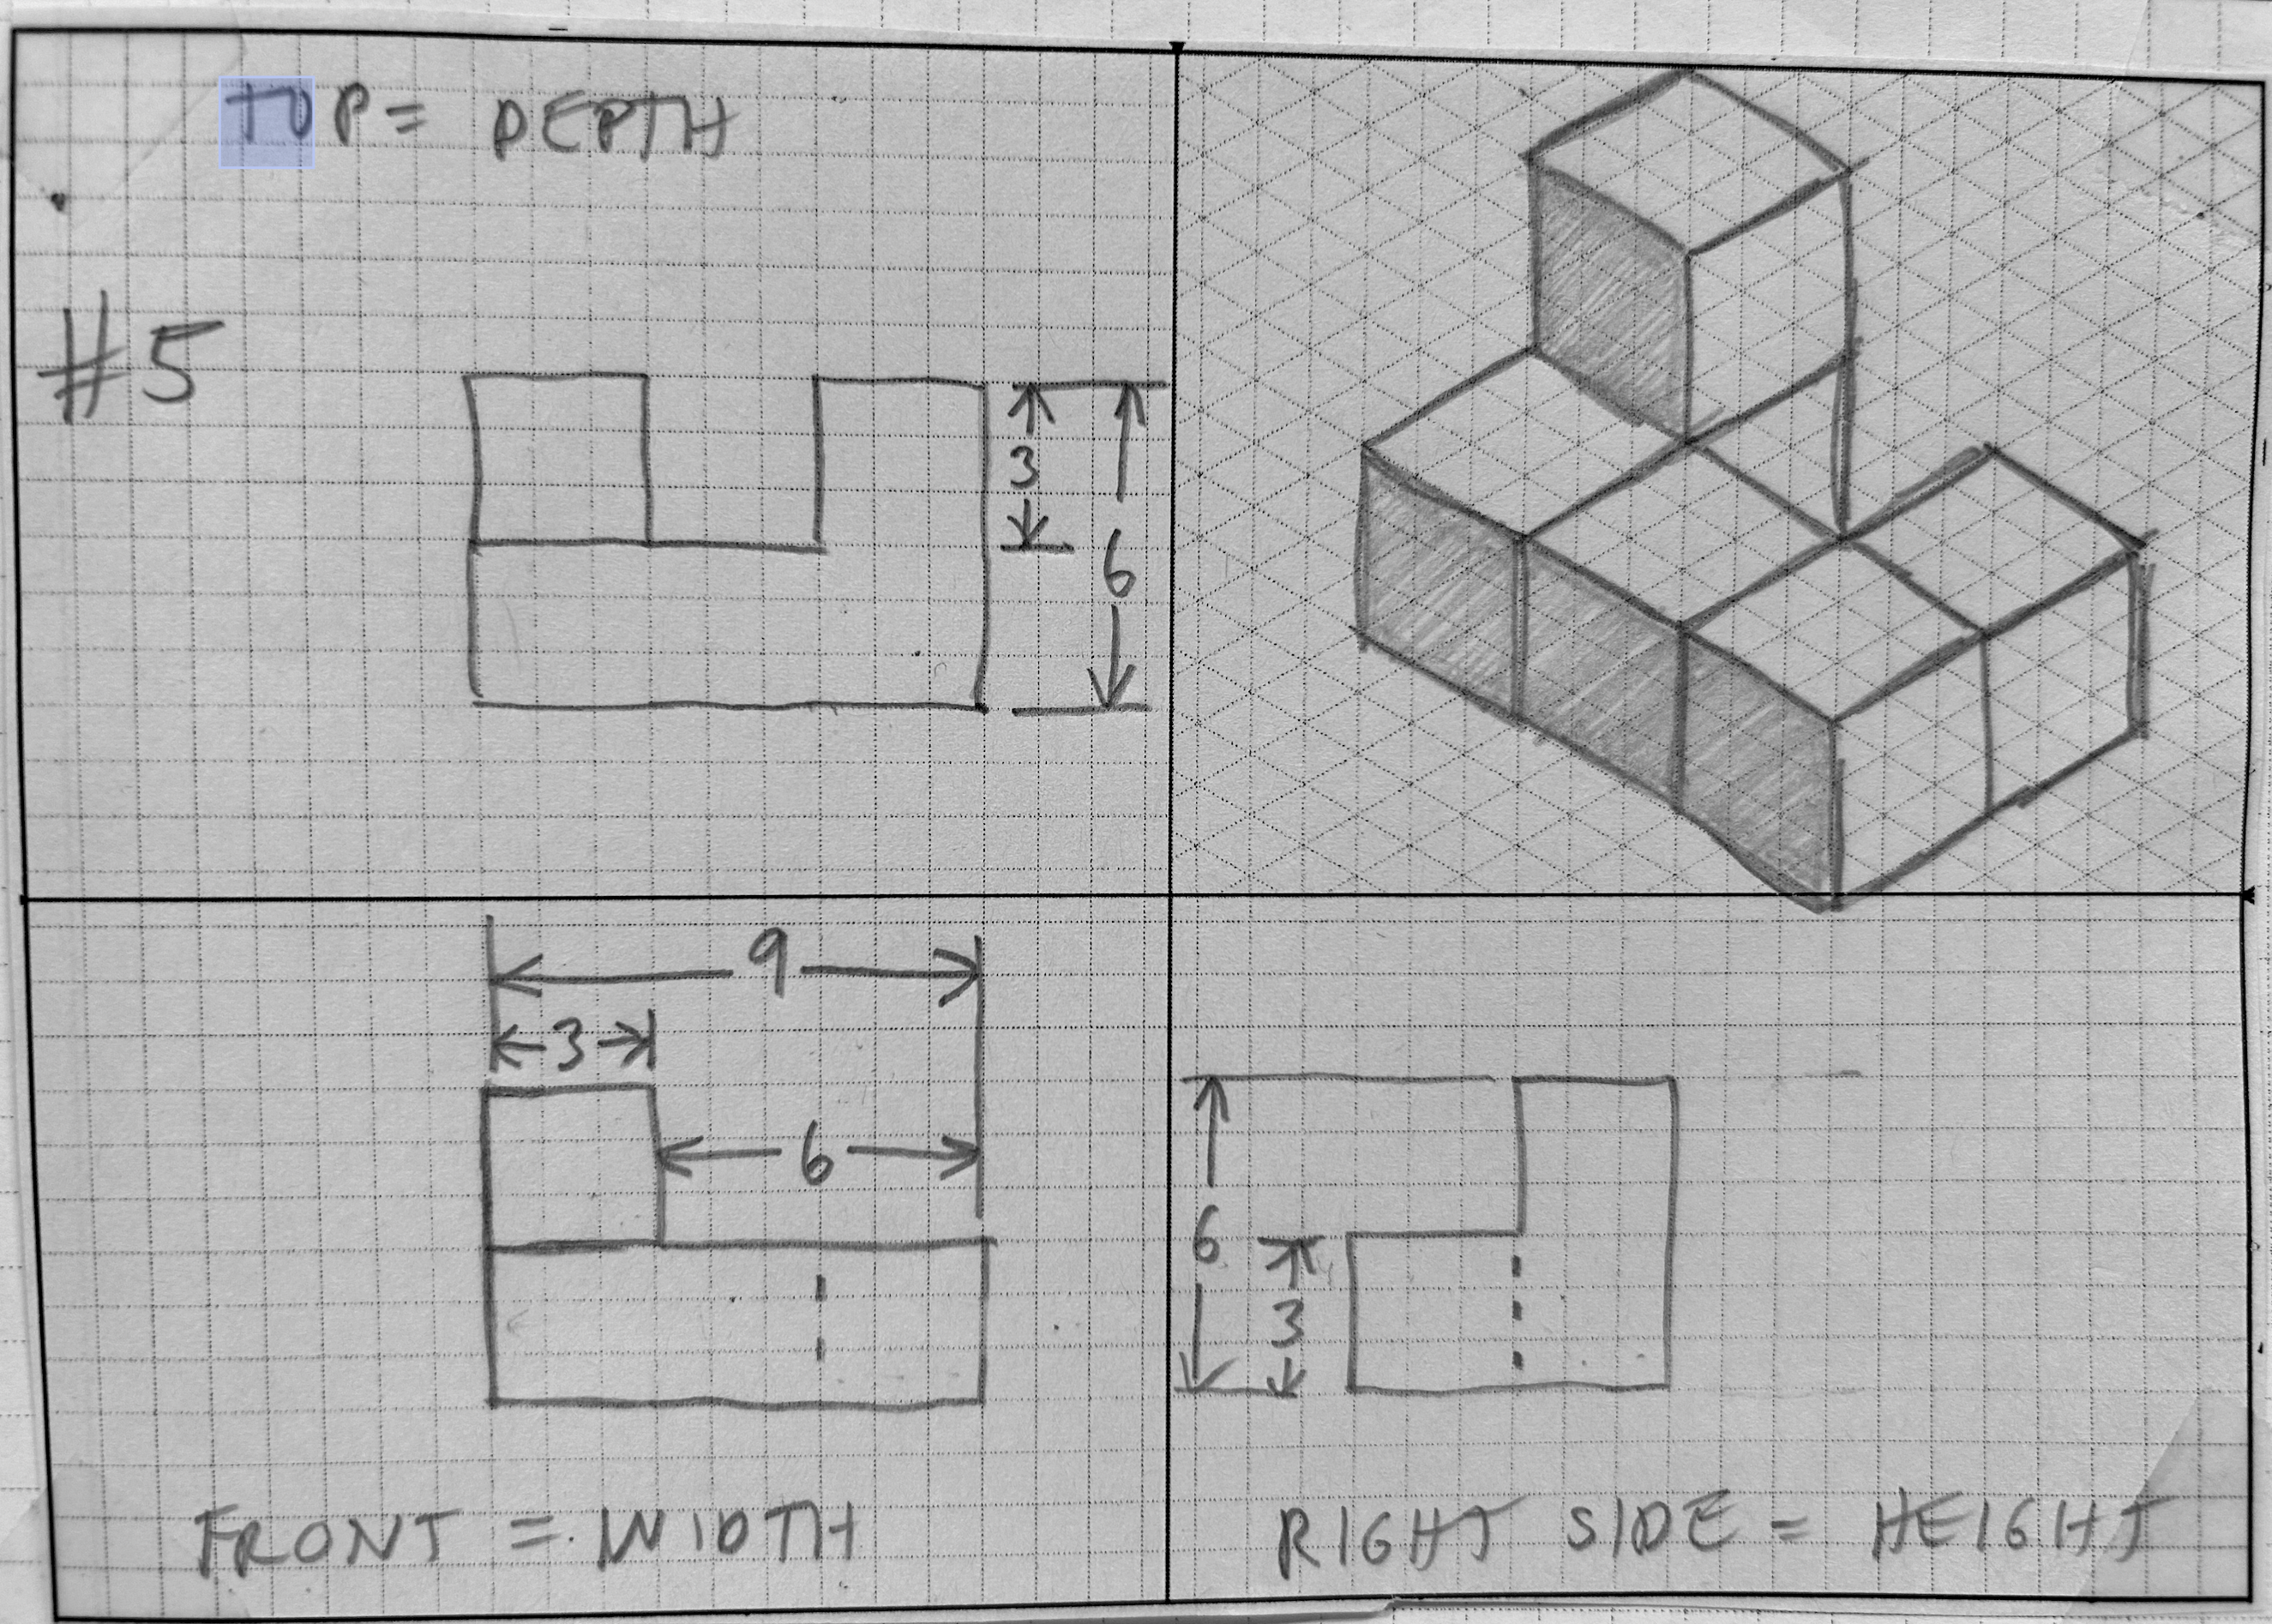 TOP = DEPTH
#5
3
6
9
3
6
6
3
FRONT = WIDTH
RIGHT SIDE = HEIGHT